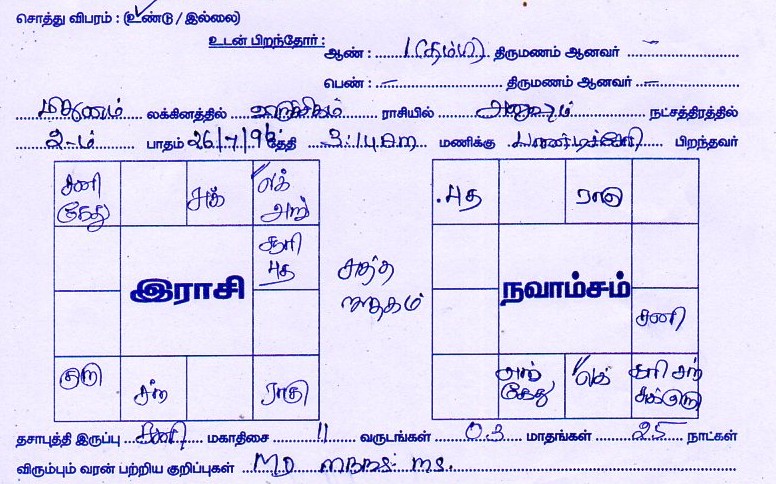 சொத்து விபரம் : (உண்டு / இல்லை)
உடன் பிறந்தோர் :
ஆண் : 1 (தம்பி) திருமணம் ஆனவர் –
பெண் : – திருமணம் ஆனவர் –
மிதுனம் லக்கினத்தில் விருச்சிகம் ராசியில் அனுஷம் நட்சத்திரத்தில்
2-ம் பாதம் 26/7/96 தேதி 3:14 am மணிக்கு பாண்டிச்சேரி பிறந்தவர்
சனி கேது
சுக்
லக் செவ்
சூரி புத
இராசி
குரு
சந்
ராகு
சுத்த ஜாதகம்
புத
ராகு
நவாம்சம்
சனி
செவ் கேது
லக்
சூரி சந் சுக் குரு
தசாபுத்தி இருப்பு சனி மகாதிசை 11 வருடங்கள் 03 மாதங்கள் 25 நாட்கள்
விரும்பும் வரன் பற்றிய குறிப்புகள் MD MBBS MS.